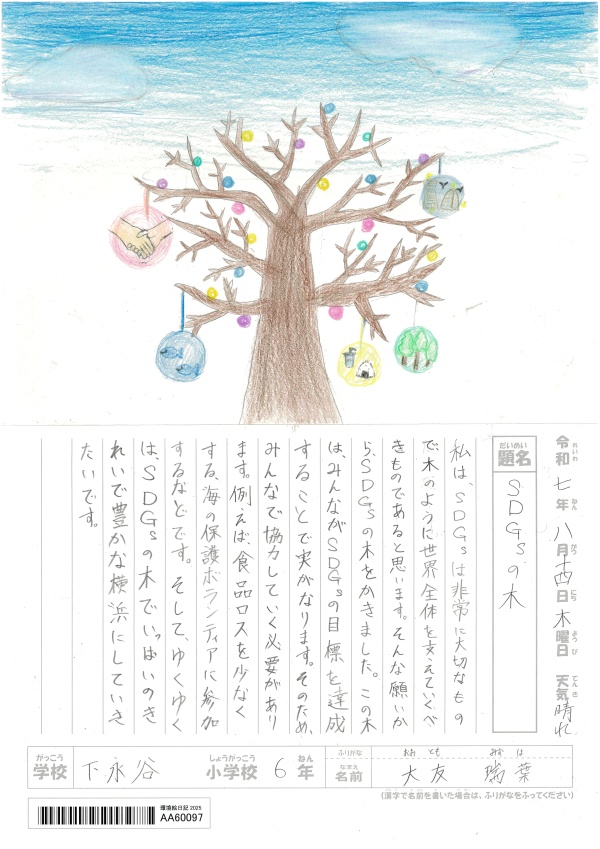 令和七年八月十四日木曜日 天気晴れ
れいわ ねん がつ にち ようび てんき
だいめい
題名 SDGsの木
私は、SDGsは非常に大切なもの
で、木のように世界全体を支えていくべ
きものであると思います。そんな願いか
ら、SDGsの木をかきました。この木
は、みんながSDGsの目標を達成
することで実がなります。そのため、
みんなで協力していく必要があり
ます。例えば、食品ロスを少なく
する、海の保護ボランティアに参加
するなどです。そして、ゆくゆく
は、SDGsの木でいっぱいのき
れいで豊かな横浜にしていき
たいです。
がっこう しょうがっこう ねん
学校 下永谷 小学校 6年
ふりがな おおとも みずは
なまえ
名前 大友 瑞葉
(漢字で名前を書いた場合は、ふりがなをふってください)
環境絵日記 2025
AA60097